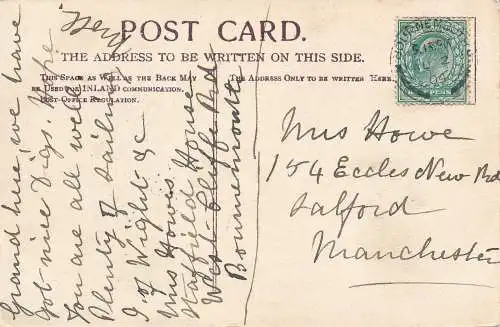 POST CARD.
THE ADDRESS TO BE WRITTEN ON THIS SIDE.
THIS SPACE AS WELL AS THE BACK MAY
BE USED FOR INLAND COMMUNICATION.
POST OFFICE REGULATION.
THE ADDRESS ONLY TO BE WRITTEN HERE.
Grand here we have
Got nice Digs. Hope
You are all well
Plenty of Sailing
I. of Wight &c
Mrs Howes
House
West Cliffe Rd
Bournemouth
Mrs Howe
154 Eccles New Rd
Salford
Manchester
BOURNEMOUTH